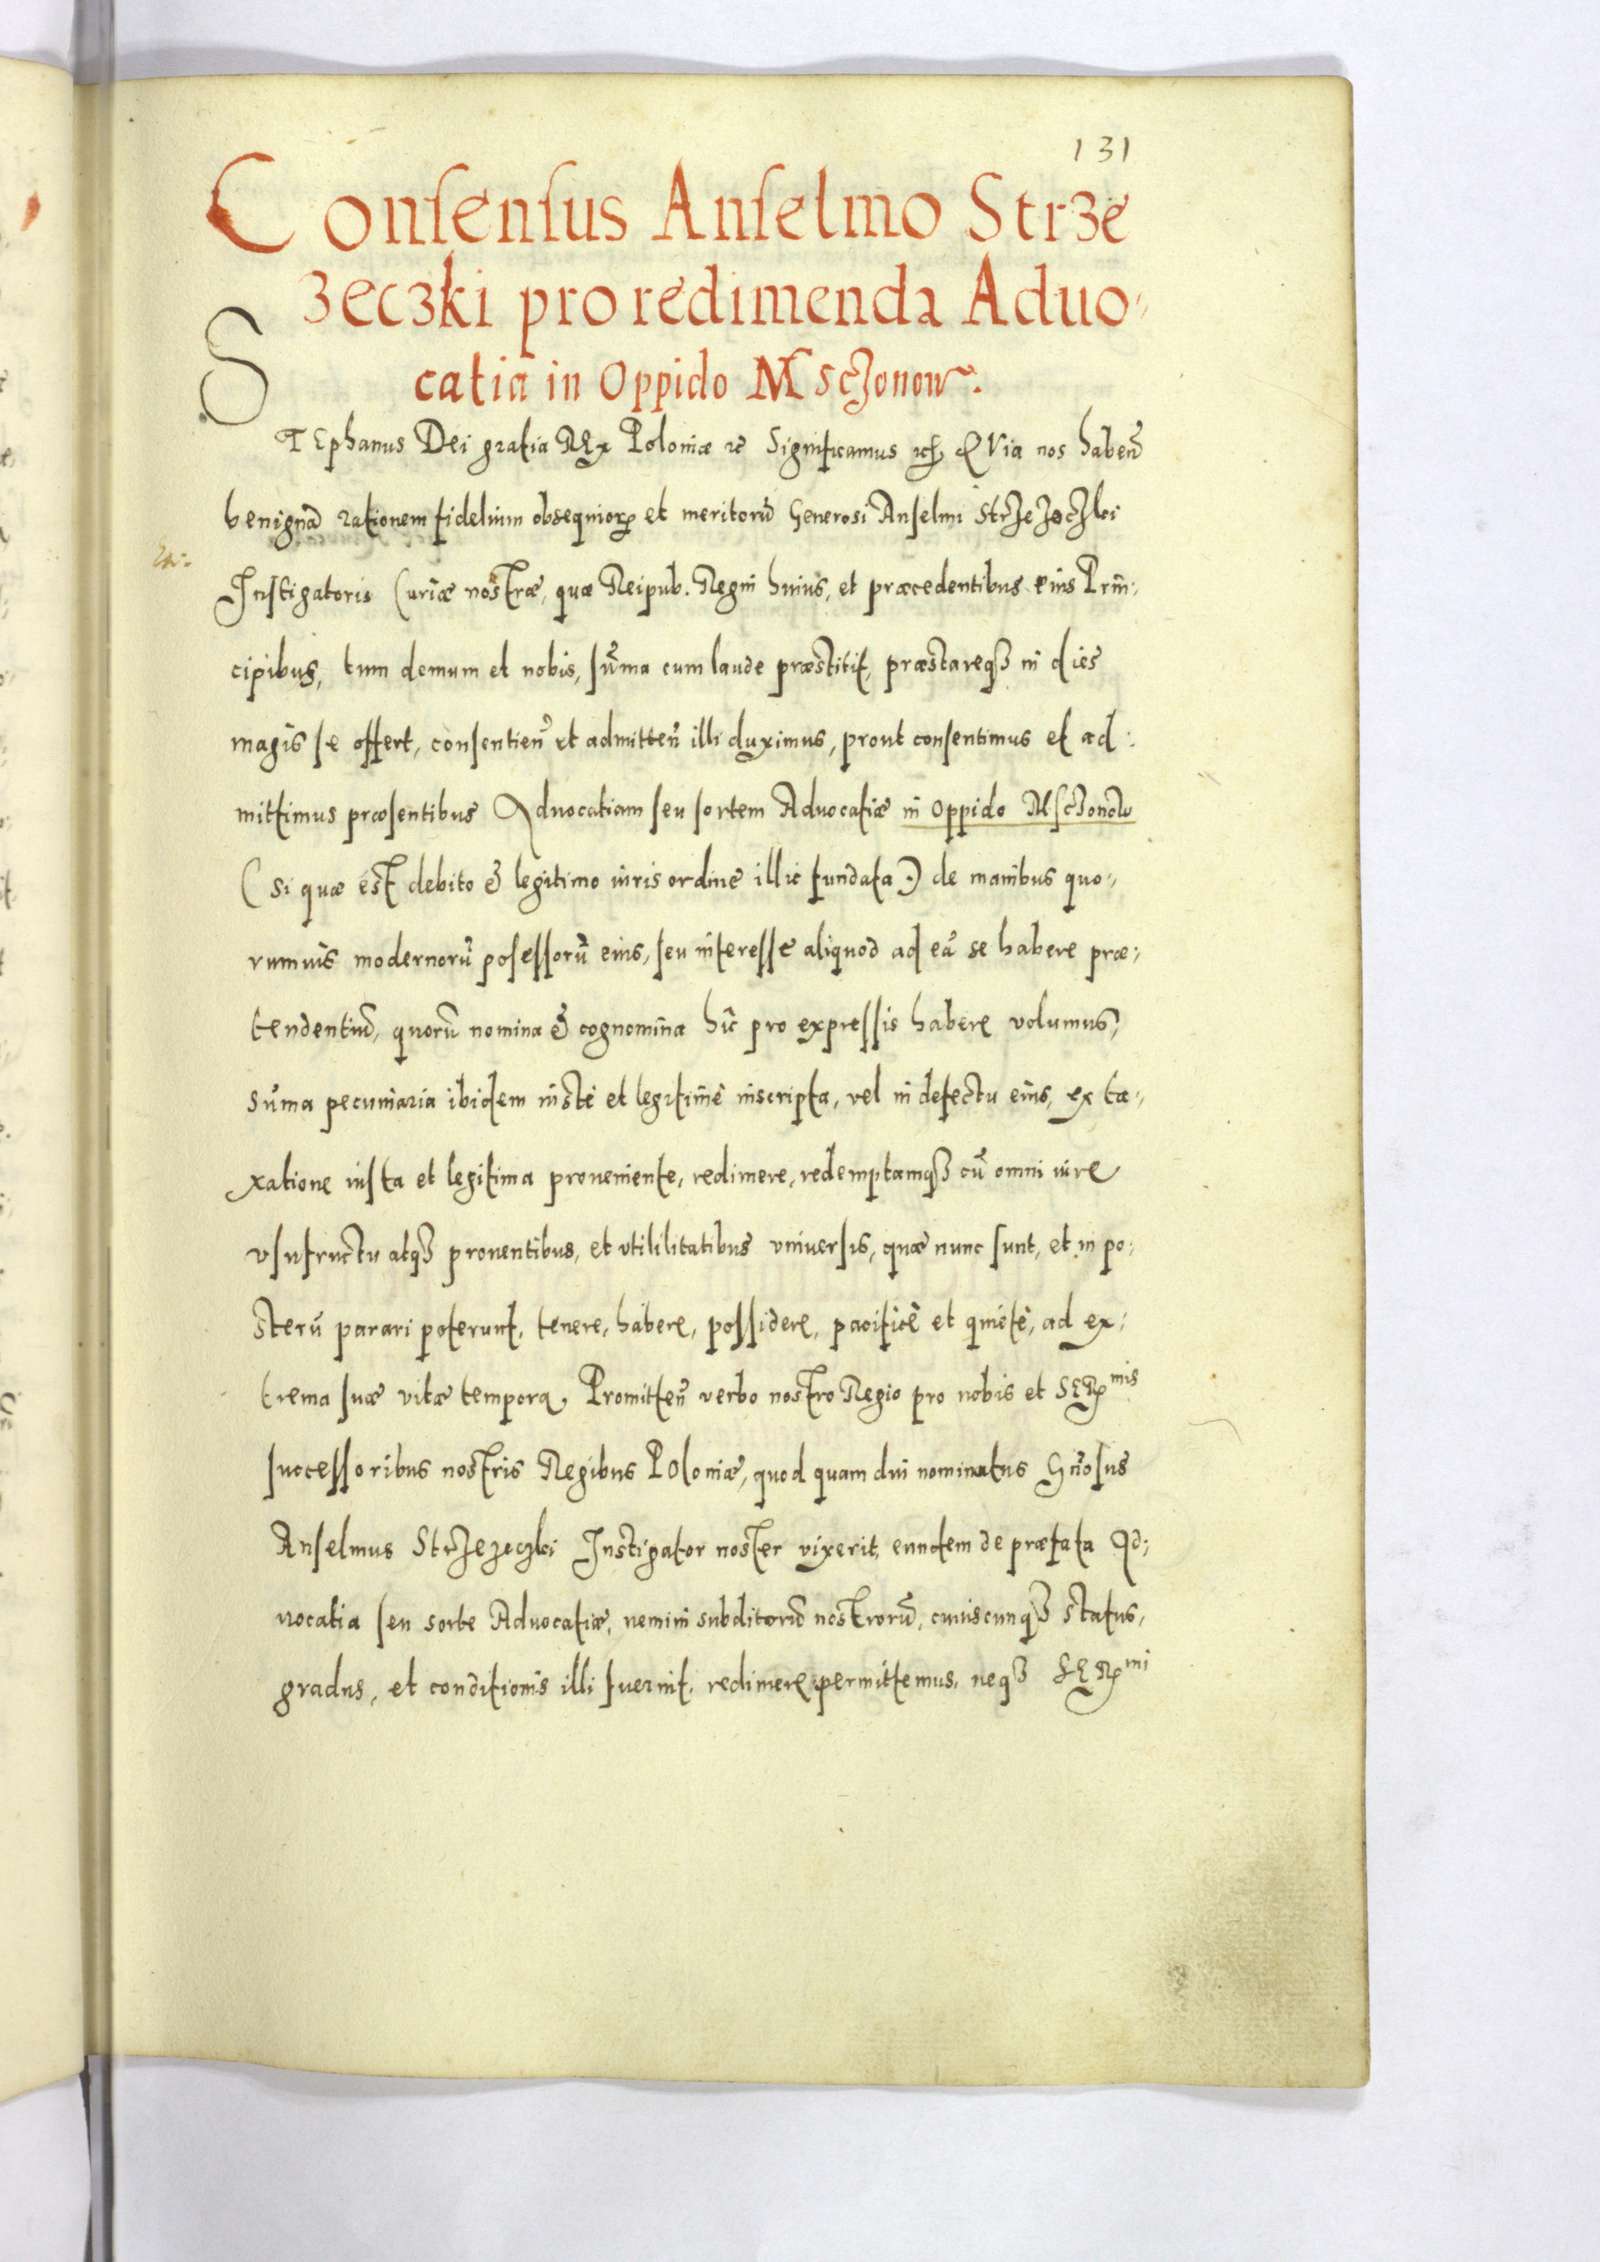 131
Consensus Anselmo Strze
zeczki pro redimenda Aduo-
catia in Oppido Msczonow.
STEphanus Dei gratia REx Poloniæ etc Significamus etc QVia nos habeñ
benignã rationem fidelium obsequiorꝝ et meritorũ Generosi Anselmi Strzezeczki
Instigatoris Curiæ nostræ, quæ Reipub. Regni huius, et præcedentibus eius Prin-
cipibus, tum demum et nobis, sũma cum laude præstitit, præstareqꝫ in dies
magis se offert, consentieñ et admitteñ illi duximus, prout consentimus et ad:
mittimus præsentibus Aduocatiam seu sortem Aduocatiæ in Oppido Msczonow
(si quæ est debito & legitimo iuris ordine illic fundata) de manibus quo-
rumuis modernorũ possessorũ eius, seu interesse aliquod ad eã se habere præ-
tendentiũ, quorũ nomina & cognomina hic pro expressis habere volumus,
sũma pecuniaria ibidem iustè et legitimè inscripta, vel in defectu eius, ex ta-
xatione iusta et legitima proueniente, redimere, redemptamqꝫ cũ omni iure
vsufructu atqꝫ prouentibus, et vtililitatibus vniuersis, quæ nunc sunt, et in po-
sterũ parari poterunt, tenere, habere, possidere, pacificè et quietè, ad ex-
trema suæ vitæ tempora. Promitteñ verbo nostro Regio pro nobis et SERmis
successoribus nostris Regibus Poloniæ, quod quam diu nominatus Gñosus
Anselmus Strzezeczki Instigator noster vixerit, eundem de præfata Ad-
uocatia seu sorte Aduocatiæ, nemini subditorũ nostrorũ, cuiuscunqꝫ status,
gradus, et conditionis illi fuerint, redimere permittemus, neqꝫ SERmi